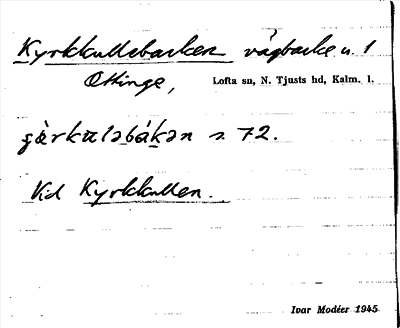 Kyrkkullebacken vägbacke u. 1
Ottinge, Lofta sn, N. Tjusts hd, Kalm. l.
s. 72.
Vid Kyrkkullen.
Ivar Modéer 1945